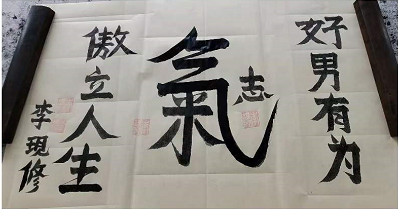 好男有为
志
氣
傲立人生
李現修